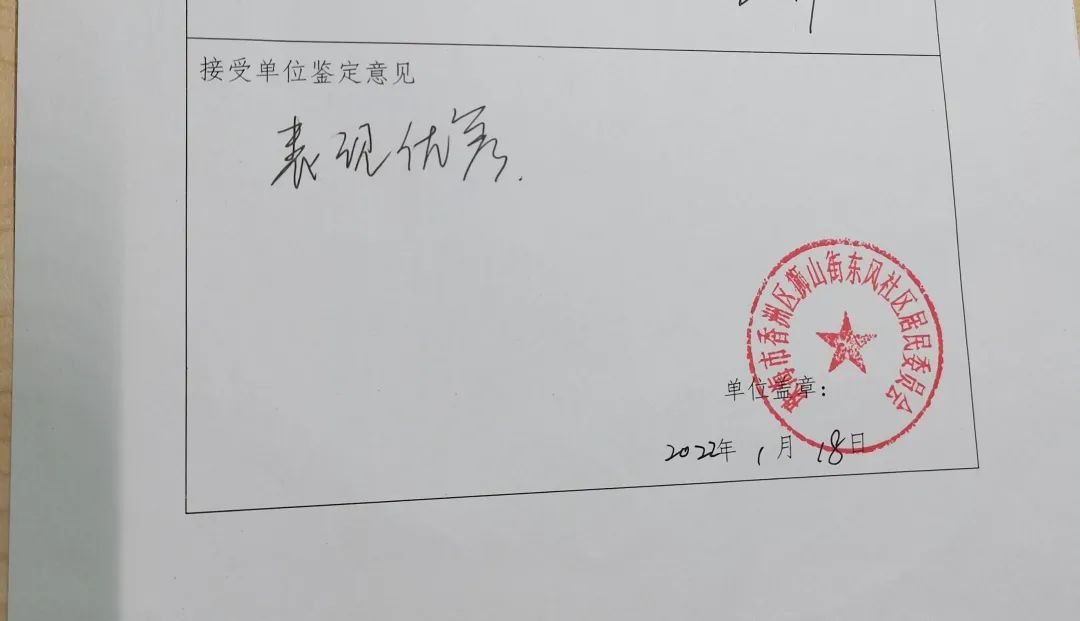 接受单位鉴定意见
表现优秀.
珠海市香洲区狮山街东风社区居民委员会
单位盖章:
2022年 1月 18日